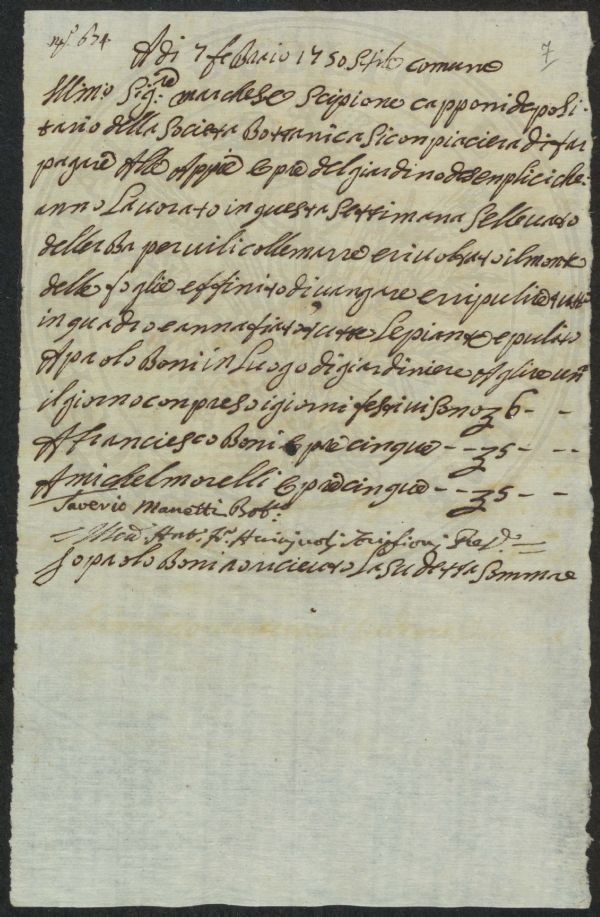 N.º 674. 7
A di 7 febraio 1750 Stile comune
Illmo Sig:re marchese Scipione capponi deposi-
tario della Società Bottanica Si conpiacierà di far
pagare Alle Appie opre del giardino de Senplici che
anno Lavorato in questa Settimana Sellevato
dellerba per vili collemarre e rivoltato il monte
delle foglie e ffinito di vangare e rripulire tutti
in quadro e annafiato tutte Le piante e pulito
A paolo Boni in Luogo di giardiniere A glire una
il giorno conpreso i giorni festivi Sono z 6 - -
A franciesco Boni opre cinque - - z 5 - -
A michel morelli opre cinque - - z 5 - -
Saverio Manetti Bot.co
Ant. Fr.
Io paolo Boni o riceuto La Su detta Somma